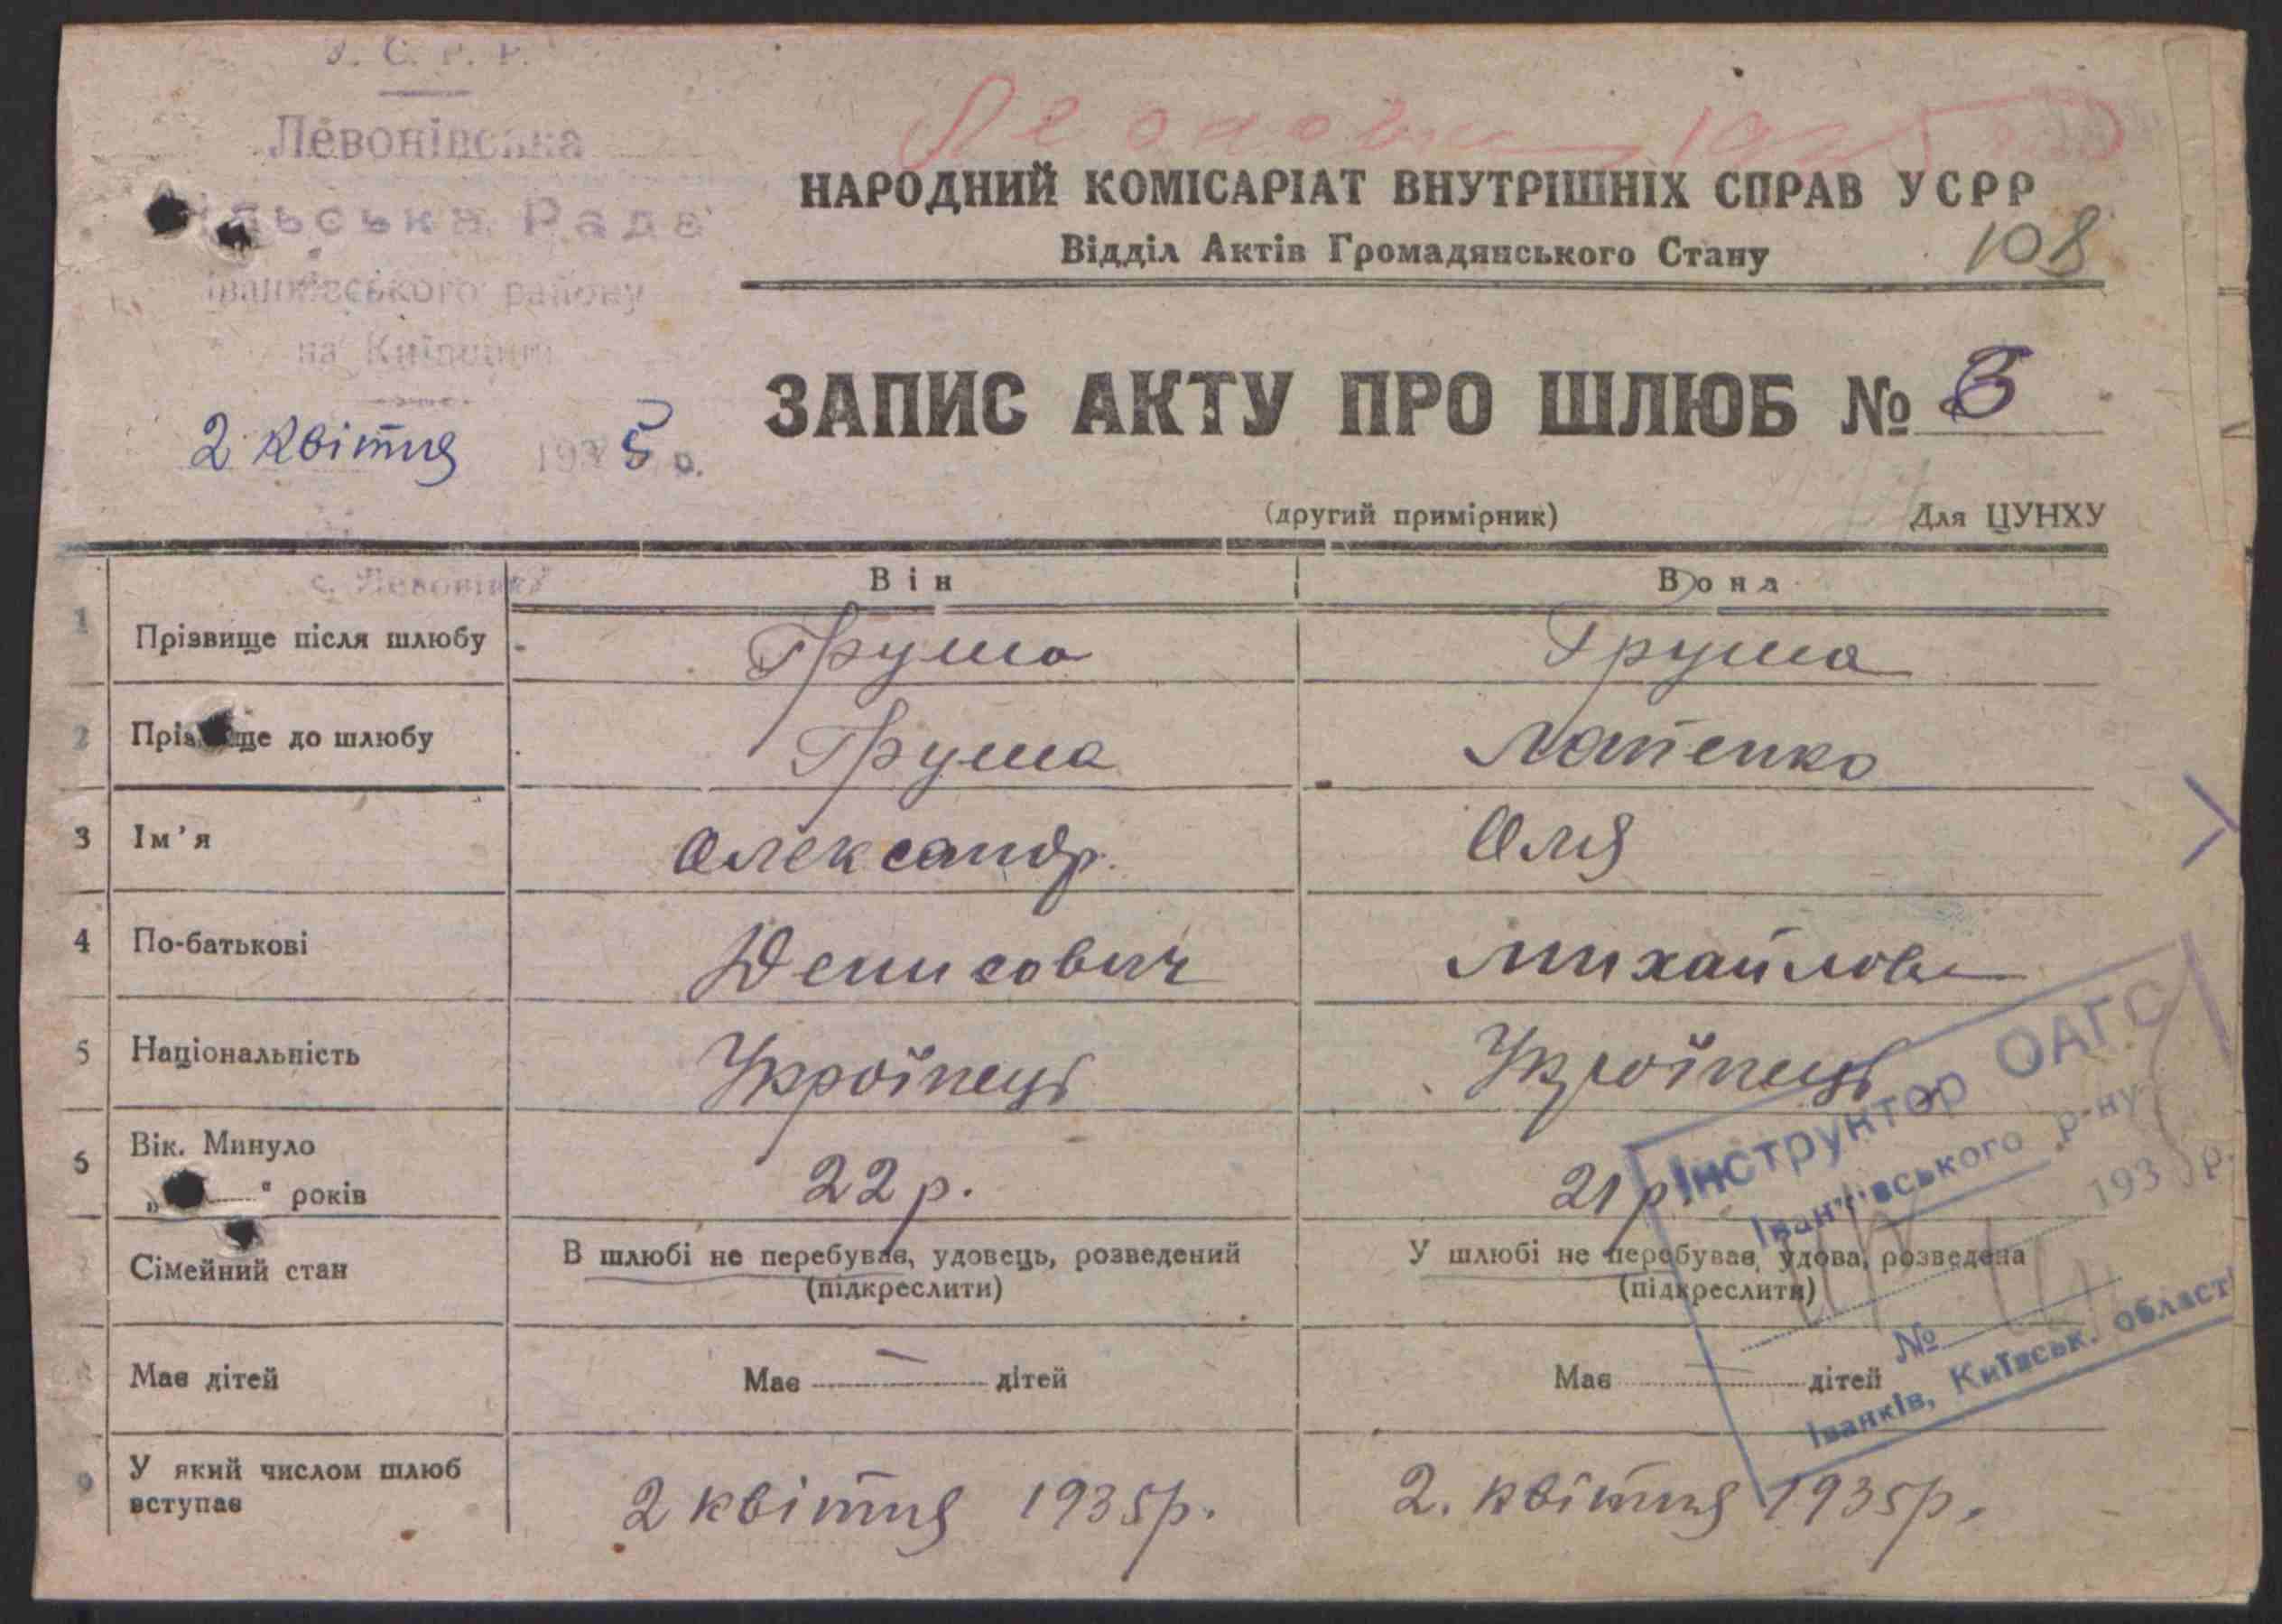 У. С. Р. Р.
Левонівська
Сільська Рада
Іванківського району
на Київщині
2 квітня 1935 р.
с. Левонівка
Леоновка 1935
НАРОДНИЙ КОМІСАРІАТ ВНУТРІШНІХ СПРАВ УСРР
Відділ Актів Громадянського Стану
108
ЗАПИС АКТУ ПРО ШЛЮБ № 3
(другий примірник) Для ЦУНХУ
Він Вона
1 Прізвище після шлюбу Груша Груша
2 Прізвище до шлюбу Груша Лапенко
3 Ім'я Олександр. Оля
4 По-батькові Денисович Михайлов
5 Національність Українець Українець
6 Вік. Минуло
„ “ років 22 р. 21 р
Сімейний стан В шлюбі не перебував, удовець, розведений У шлюбі не перебував, удова, розведена
(підкреслити) (підкреслити)
Має дітей Має — дітей Має — дітей
9 У який числом шлюб
вступає 2 квітня 1935р. 2. квітня 1935р.
Інструктор ОАГС
Іванківського р-ну
193 р.
№
Іванків, Київськ. област